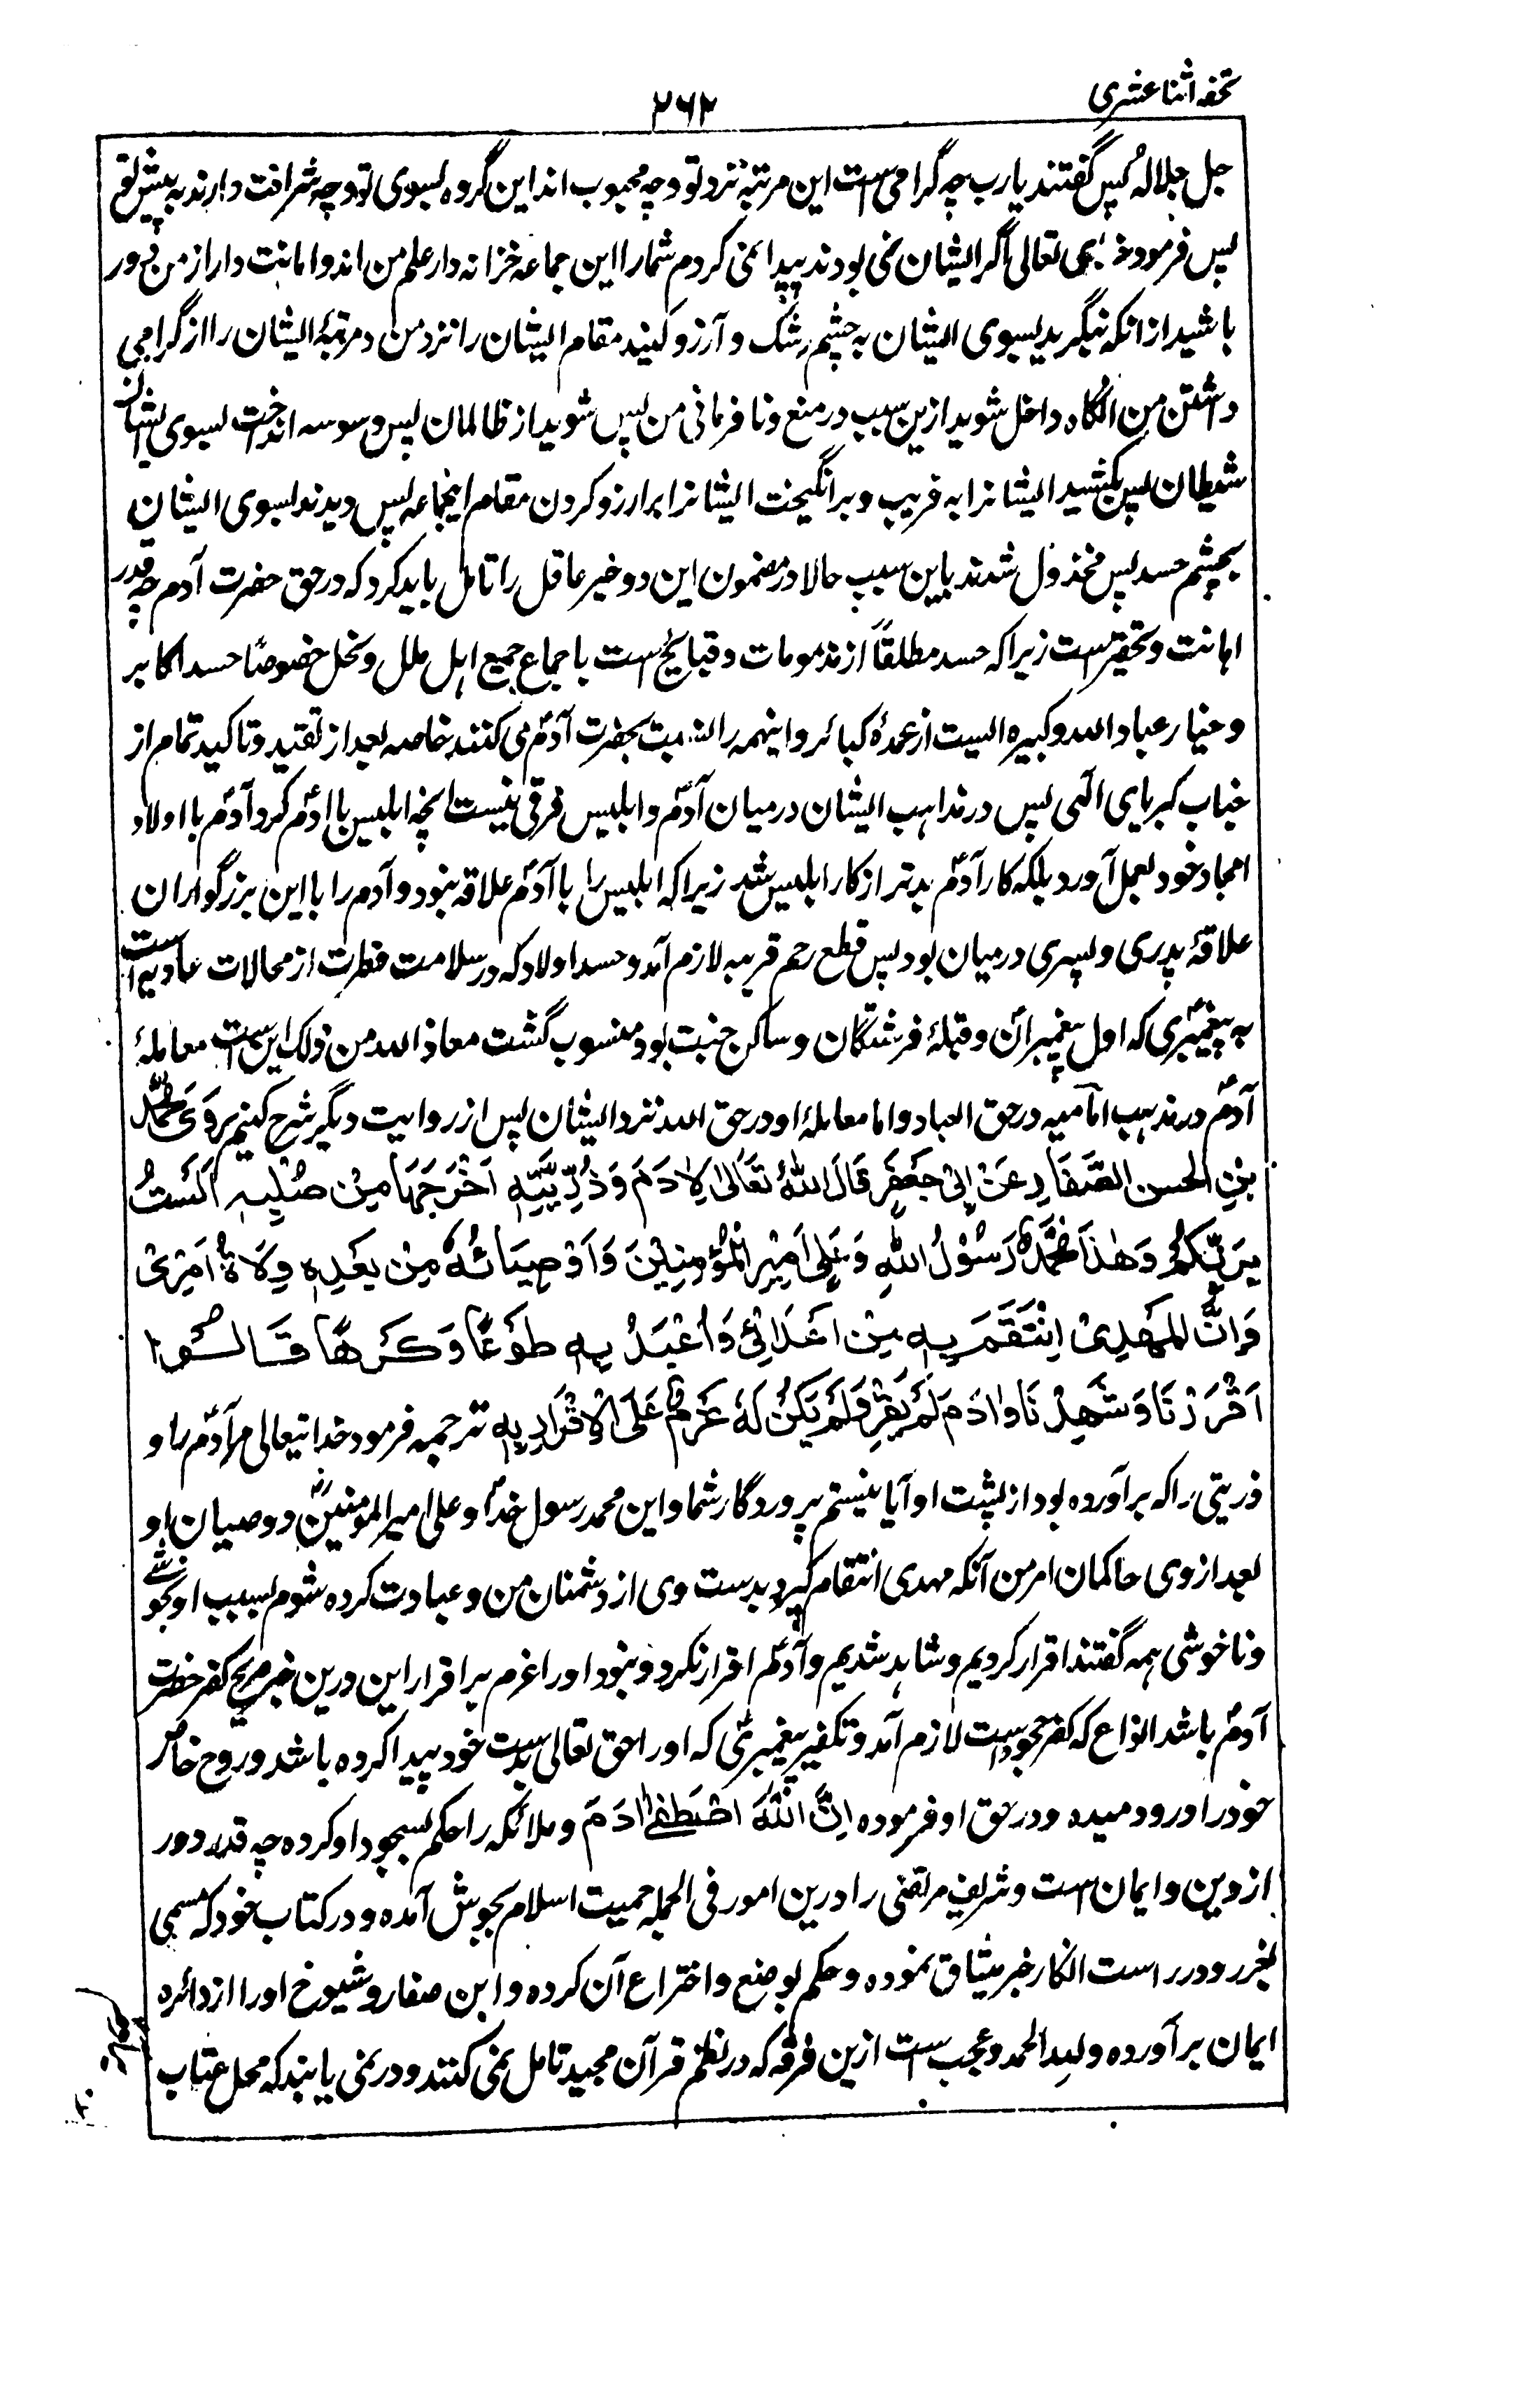 تحفه اثنا عشری
۲۶۲
جل جلاله پس گفتند یارب چه گرامی ست این مرتبه نزد تو و چه محبوب اند این گروه بسوی تو و چه شرافت دارند به پیش تو
پس فرمود خدای تعالی اگر ایشان نمی بودند پیدا نمی کردم شما را این جماعه خزانه دار علم من اند و امانت دار راز من دور
باشید از انکه بنگرید بسوی ایشان به چشم رشک و آرزو کنید مقام ایشان را نزد من و مرتبهٔ ایشان را از گرامی
داشتن من آنگاه داخل شوید ازین سبب در منع و نافرمانی من پس شوید از ظالمان پس وسوسه انداخت بسوی ایشان
شیطان پس بکشید ایشانرا به فریب و برانگیخت ایشانرا بر آرزو کردن مقام اینجماعه پس دیدند بسوی ایشان
بچشم حسد پس مخذول شدند باین سبب حالا در مضمون این دو خبر عاقل را تامل باید کرد که در حق حضرت آدم چه قدر
اهانت و تحقیرست زیرا که حسد مطلقاً از مذمومات و قبایح ست باجماع جمیع اہل ملل و نحل خصوصًا حسد اکابر
و خیار عباد الله و کبیره ایست از عمدهٔ کبائر و اینهمه را نسبت بحضرت آدمؑ می کنند خاصه بعد از تقید و تاکید تمام از
جناب کبریای الٰهی پس در مذاہب ایشان درمیان آدمؑ و ابلیس فرقی نیست انچه ابلیس با آدمؑ کرد آدمؑ با اولاد
امجاد خود بعمل آورد بلکه کار آدمؑ بدتر از کار ابلیس شد زیرا که ابلیس را با آدمؑ علاقه نبود و آدم را با این بزرگواران
علاقهٔ پدری و پسری درمیان بود پس قطع رحم قریبه لازم آمد و حسد اولاد که در سلامت فطرت از محالات عادیه است
به پیغمبری که اول پیغمبران و قبلهٔ فرشتگان و ساکن جنت بود منسوب گشت معاذ الله من ذلک این ست معاملهٔ
آدمؑ در مذہب امامیه در حق العباد و اما معاملهٔ او در حق الله نزد ایشان پس از روایت دیگر شرح کنیم رَوَی مُحَمَّدُ
بْنِ الحسن الصَّفَارِ عَنْ اَبِیْ جَعْفَرٍ قَالَ اللّٰهُ تَعَالٰی لِاٰدَمَ وَذُرِّیَّتِهٖ اَخْرَجَهَا مِنْ صُلْبِهٖ اَلَسْتُ
بِرَبِّکُمْ وَهٰذَا مُحَمَّدٌ رَسُوْلُ اللهِ وَعَلِیٌّ اَمِیْرُ الْمُؤْمِنِیْنَ وَاَوْصِیَائُهٗ مِنْ بَعْدِهٖ وِلَاةُ اَمْرِیْ
وَاَنَّ الْمَهْدِیَّ اَنْتَقِمُ بِهٖ مِنْ اَعْدَائِیْ وَاُعْبَدُ بِهٖ طَوْعًا وَکَرْهًا قَالُوْا
اَقْرَرْنَا وَشَهِدْنَا وَاٰدَمُ لَمْ یُقِرَّ وَلَمْ یَکُنْ لَهٗ عَزْمٌ عَلَی الْاِقْرَارِ بِهٖ ترجمه فرمود خدا تیعالی مر آدمؑ را و
ذریتی را که برآورده بود از پشت او آیا نیستم پروردگار شما و این محمد رسول خدا و علی امیر المومنین و وصیان او
بعد از وی حاکمان امر من آنکه مهدی انتقام گیرد بدست وی از دشمنان من و عبادت کرده شوم بسبب او بخوشی
و ناخوشی ہمه گفتند اقرار کردیم و شاہد شدیم و آدمؑ اقرار نکرد و نبود او را عزم بر اقرار این درین خبر صریح کفر حضرت
آدمؑ باشد انواع که کفر جحودست لازم آمد و تکفیر پیغمبری که او را حق تعالی بدست خود پیدا کرده باشد و روح خاص
خود را درو دمیده و در حق او فرموده اِنَّ اللّٰهَ اصْطَفٰی اٰدَمَ و ملائکه را حکم بسجود او کرده چه قدر دور
از دین و ایمان ست و شریف مرتضی را درین امور فی الجمله حمیت اسلام بجوش آمده و در کتاب خود که مسمی
بغرر و درر است انکار خبر میثاق نموده و حکم بوضع و اختراع آن کرده و ابن صفار و شیوخ او را از دائره
ایمان برآورده و لله الحمد و عجب ست ازین فرقه که در نظم قرآن مجید تامل نمی کنند و در نمی یابند که محل عتاب